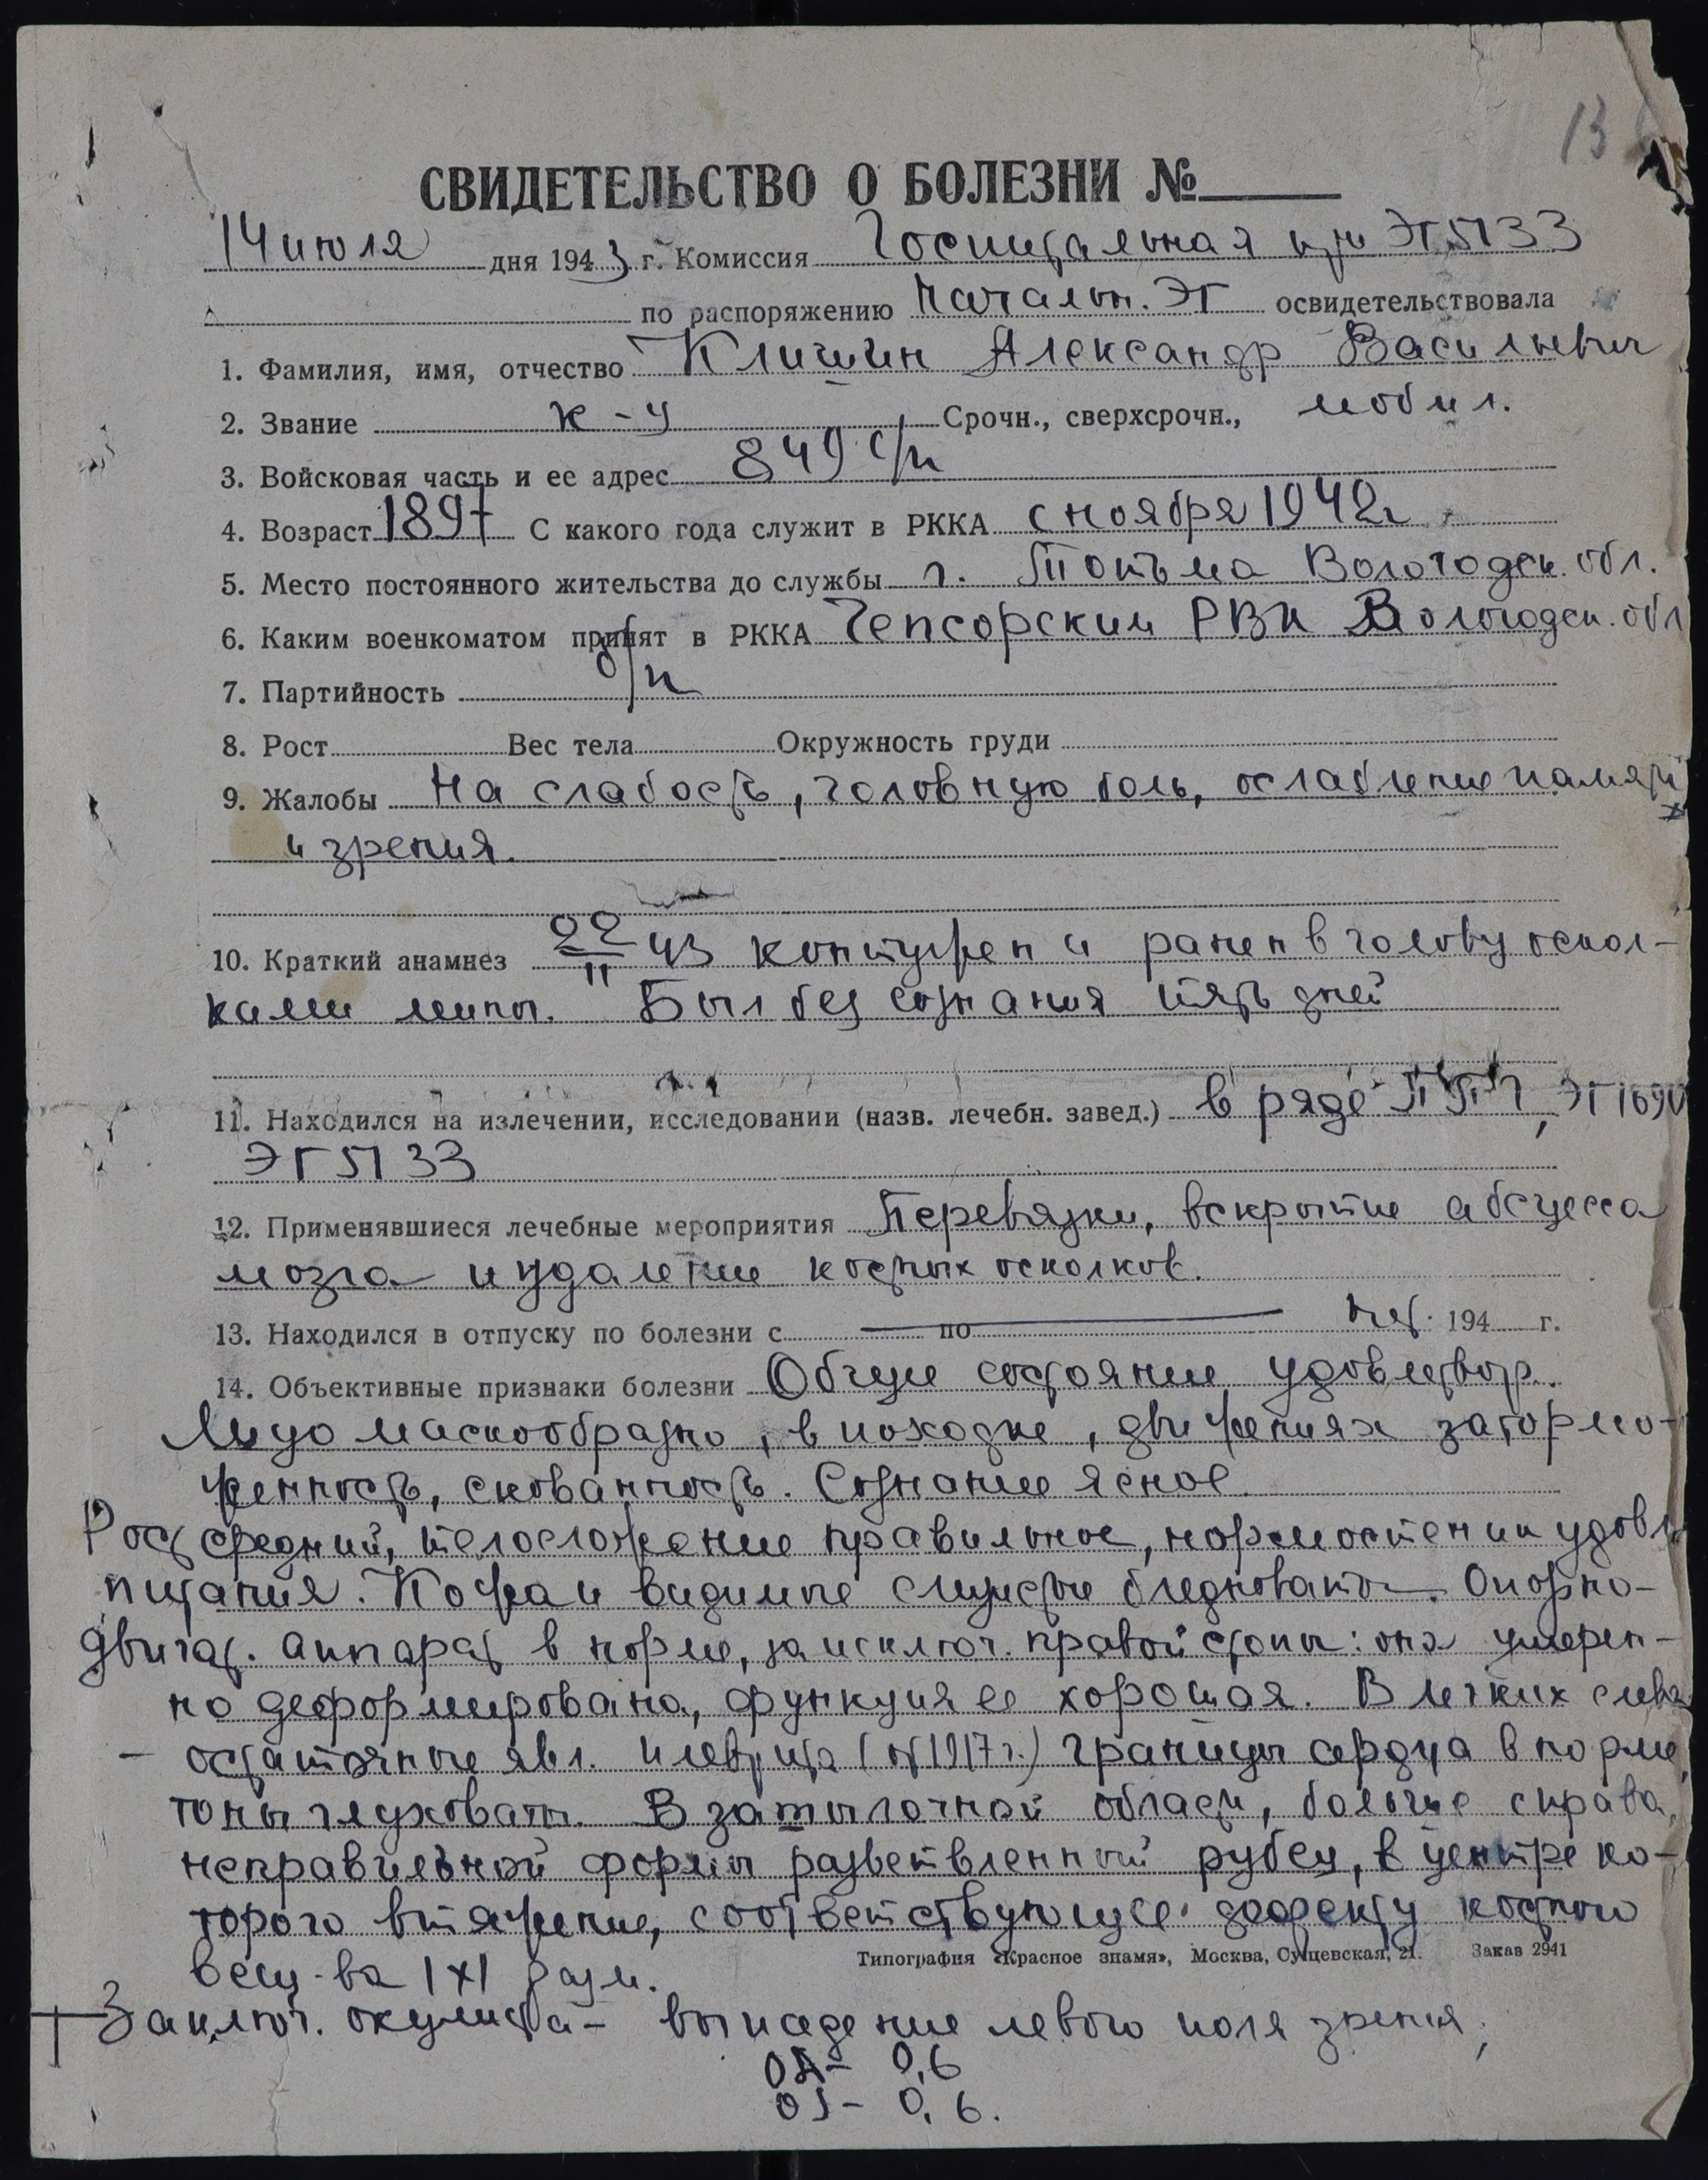 13
СВИДЕТЕЛЬСТВО О БОЛЕЗНИ №
14 июля дня 1943 г. Комиссия Госпитальная при ЭГ 5133
по распоряжению Начальн. ЭГ освидетельствовала
1. Фамилия, имя, отчество Клишин Александр Васильевич
2. Звание к-ц Срочн., сверхсрочн., мобил.
3. Войсковая часть и ее адрес 849 с/п
4. Возраст 1897 С какого года служит в РККА с ноября 1942г
5. Место постоянного жительства до службы г. Тотьма Вологодск. обл.
6. Каким военкоматом принят в РККА РВК Вологодск. обл
7. Партийность б/п
8. Рост Вес тела Окружность груди
9. Жалобы На слабость, головную боль, ослабление памяти
и зрения.
10. Краткий анамнез 22/II 43 контужен и ранен в голову оскол-
ками мины. Был без сознания пять дней
11. Находился на излечении, исследовании (назв. лечебн. завед.) в ряде ППГ, ЭГ 1690
ЭГ 5133
12. Применявшиеся лечебные мероприятия Перевязки, вскрытие абсцесса
мозга и удаление костных осколков.
13. Находился в отпуску по болезни с по нет. 194 г.
14. Объективные признаки болезни Общее состояние удовлетвор.
Лицо маскообразно, в походке, движениях затормо-
женность, скованность. Сознание ясное.
Рост средний, телосложение правильное, нормостеник удовл.
питания. Кожа и видимые слизистые бледноваты. Опорно-
двигат. аппарат в норме, за исключ. правой стопы: она умерен-
но деформирована, функция ее хорошая. В легких слева
– остаточные явл. плеврита (от 1917 г.) границы сердца в норме,
тоны глуховаты. В затылочной области, больше справа,
неправильной формы разветвленный рубец, в центре ко-
торого втяжение, соответствующее дефекту костного
Типография «Красное знамя», Москва, Сущевская, 21. Заказ 2941
вещ-ва 1х1 разм.
Заключ. окулиста – выпадение левого поля зрения;
OD – 0,6
OS – 0,6.